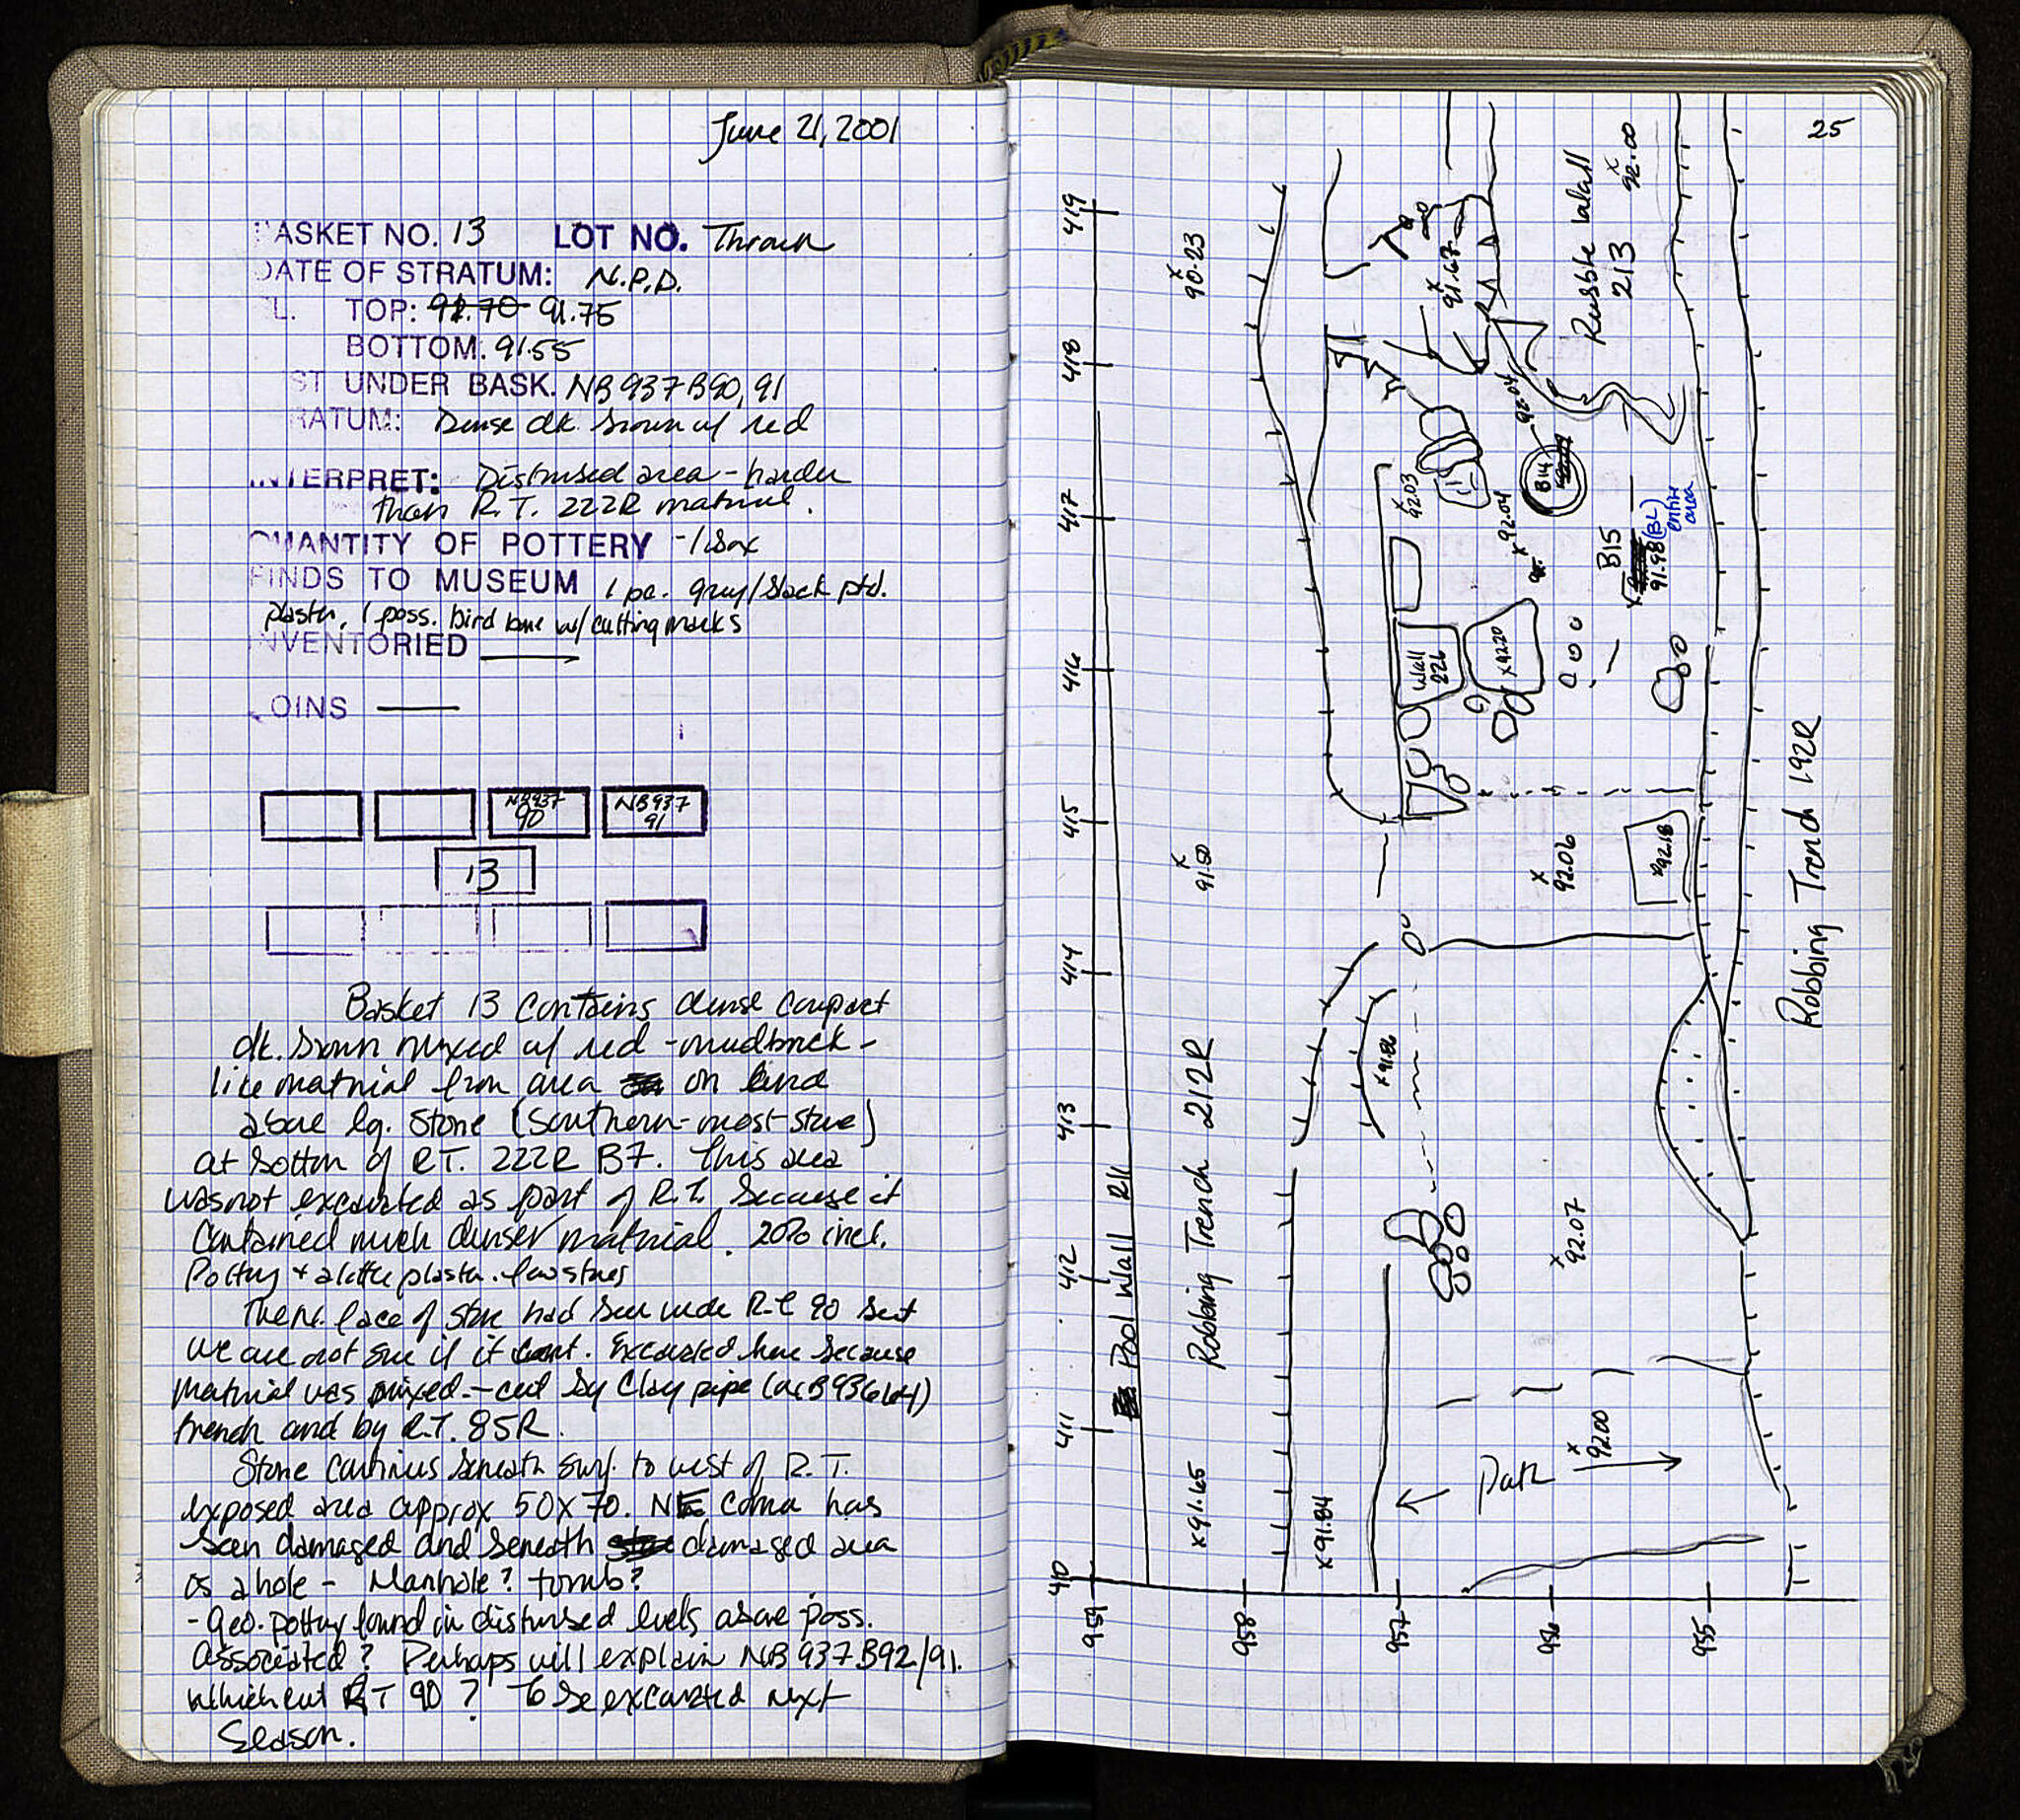 June 21, 2001
ASKET NO. 13 LOT NO. Thrown
DATE OF STRATUM: N.P.D.
L. TOP: 91.75
BOTTOM: 91.55
ST UNDER BASK. NB937B90, 91
RATUM: Dense dk. brown w/ red
INTERPRET: Disturbed area - harder
than R.T. 222R material.
QUANTITY OF POTTERY - 1 box
FINDS TO MUSEUM 1 pc. gray/black ptd.
plaster, 1 poss. bird bone w/ cutting marks
INVENTORIED
OINS
NB937 90
NB937 91
13
Basket 13 contains dense compact
dk. brown mixed w/ red - mudbrick -
like material from area on and
above lg. stone (southern-most stone)
at bottom of R.T. 222R B7. This area
was not excavated as part of R.T. because it
contained much denser material. 20% incl.
Pottery + a little plaster. few stones
The N. face of stone had been made R.T. 90 but
we are not sure if it. Excavated here because
material was mixed - cut by clay pipe
trench and by R.T. 85R.
Stone continues beneath surf. to west of R.T.
exposed area approx 50 x 70. NE corner has
been damaged and beneath damaged area
is a hole - Manhole? tomb?
- Geo. pottery found in disturbed levels above poss.
associated? Perhaps will explain NB937B92/91.
which cut RT 90? To be excavated next
season.
25
410 411 412 413 414 415 416 417 418 419
959
958
957
956
955
Pool Wall R11
Robbing Trench 212R
Robbing Trench 192R
Rubble Wall
213
92.00
90.23
91.67
92.04
92.03
92.04
B14
B15
91.98 (BL)
entire
area
Wall
226
x92.20
91.50
92.06
x92.18
x91.86
92.07
92.00
Path
x91.65
x91.84